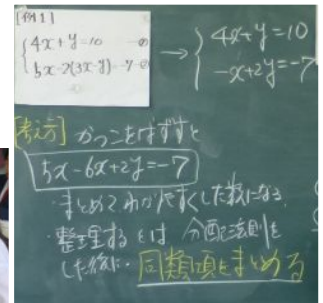 [例1]
4x+y=10 ―①
5x-2(3x-y)=-7 ―②
→ 4x+y=10
-x+2y=-7
[考え方] かっこをはずすと
5x-6x+2y=-7
・まとめてわかりやすくした数になる、
・整理するとは 分配法則を
した後に・同類項をまとめる